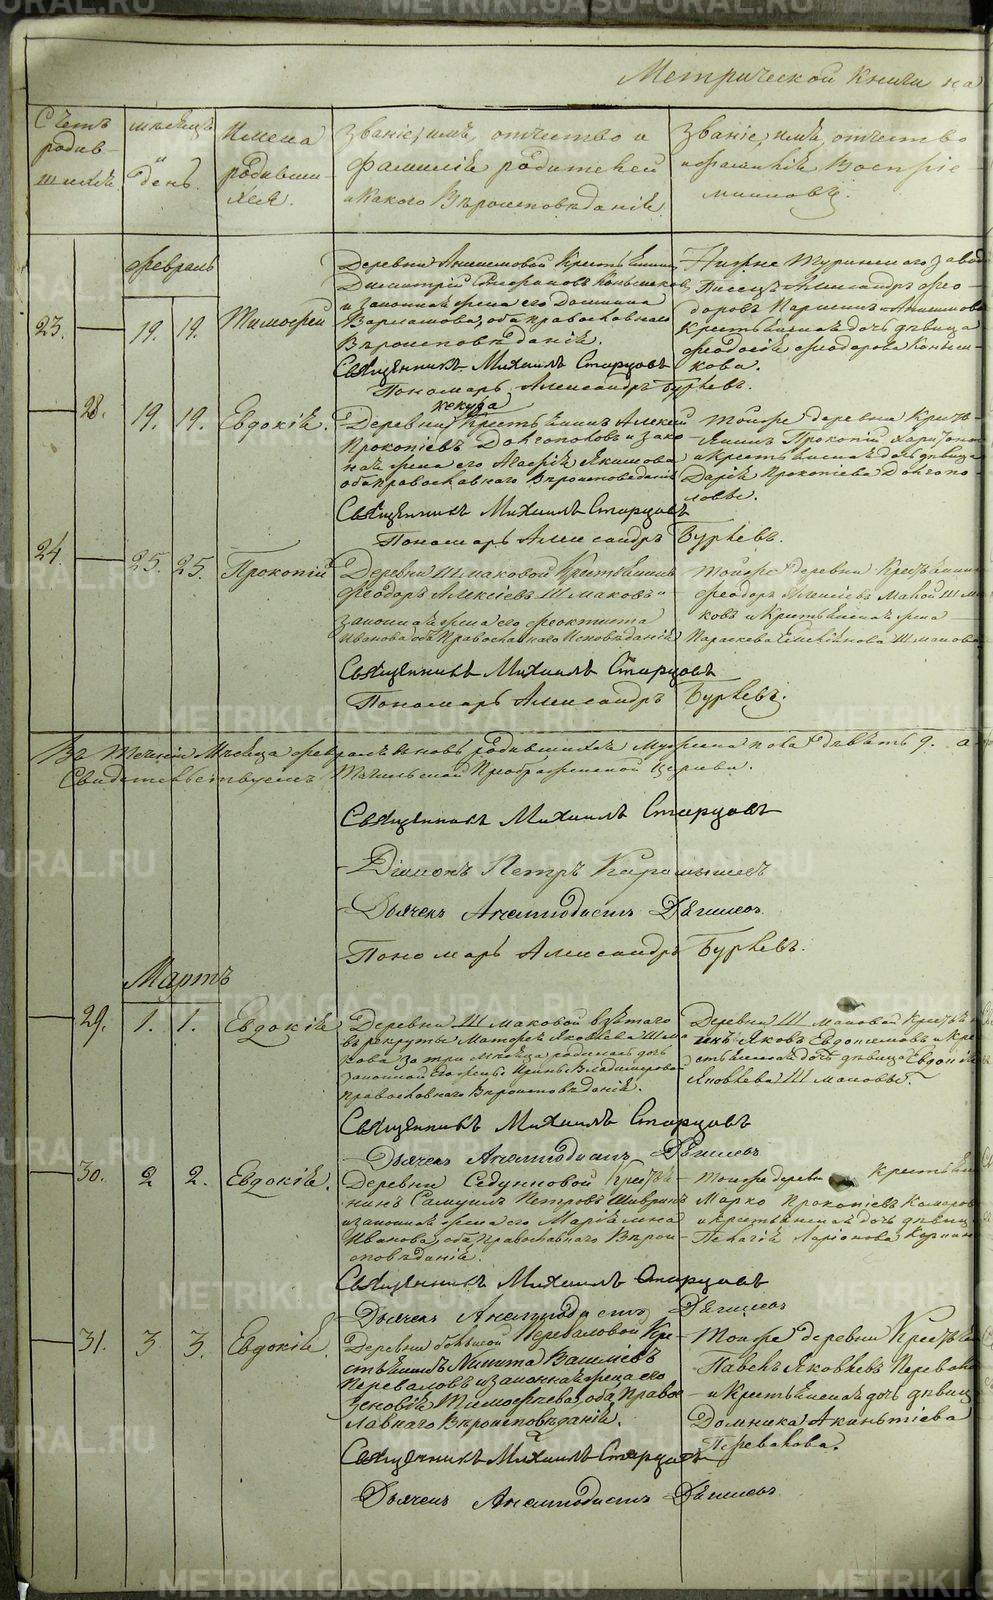 Метрической книги на
Счетъ родив- шихся
мѣсяцъ и день.
Имена родивши- хся.
Званіе, имя, отчество и
фамилія родителей
и какого вѣроисповѣданія
Званіе, имя, отчество
и фамилія воспріе-
мниковъ.
февраль
23. 19. 19. Тимофей
Деревни Анисимовой Крестьянинъ
Дмитрій Коньшиковъ
и законная жена его Домнина
Варламова, оба православнаго
вѣроисповѣданія.
Священникъ Михаилъ Старцовъ
Пономарь Александръ Бурлевъ.
Нижне Туринскаго завода
Писецъ Александръ Фео-
доровъ
Крестьянская дочь дѣвица
Феодосія Феодорова Коньши-
кова.
28. 19. 19. Евдокія.
кекура
Деревни Крестьянинъ Алексѣй
Прокопіевъ Долгополовъ и зако-
ная жена его Агафія Якимова
оба православнаго вѣроисповеданія
Священникъ Михаилъ Старцовъ
Пономарь Александръ Бурлевъ.
Тойже деревни Кресть-
янинъ Прокопій Харитоновъ
и крестьянская дочь дѣвица
Дарія Прокопіева Долгопо-
лова.
24. 25. 25. Прокопій
Деревни Шмаковой Крестьянинъ
Феодоръ Алексіевъ Шмаковъ и
законная жена его Феоктиста
Иванова оба Православнаго Исповѣданія
Священникъ Михаилъ Старцовъ
Пономарь Александръ Бурлевъ.
Тойже деревни Крестьянинъ
Феодоръ Алексіевъ Малой Шма-
ковъ и Крестьянская жена
Параскева Шмакова
Въ теченіи Мѣсяца февраля вновь родившихся Мужеска пола дѣвять 9. а
Свидетельствуемъ Преображенской церкви.
Священникъ Михаилъ Старцовъ
Діаконъ Петръ Карамышевъ
Дьячекъ Анемподистъ Дягилевъ
Пономарь Александръ Бурлевъ.
Мартъ
29. 1. 1. Евдокія
Деревни Шмаковой взѣтаго
въ рекруты Яковлева Шма-
кова за три мѣсяца родилась дочь
законной его жены Ирины Владимеровой
православнаго вѣроисповѣданія.
Священникъ Михаилъ Старцовъ
Дьячекъ Анемподистъ Дягилевъ
Деревни Шмаковой Крестья-
нинъ Яковъ Евдокимовъ и кре-
стьянская дочь дѣвица Евдокія
Яковлева Шмакова.
30. 2 2. Евдокія.
Деревни Седунновой Крестья-
нинъ Самуилъ Петровъ
и законная жена его Маріямна
Иванова, оба Православнаго Вѣрои-
сповѣданія.
Священникъ Михаилъ Старцовъ
Дьячекъ Анемподистъ Дягилевъ
Тойже деревни Крестьян
Марко Прокопіевъ Комаров
и крестьянская дочь дѣвица
Пелагія Ларіонова
31. 3 3. Евдокія.
Деревни большой Переваловой Кре-
стьянинъ Никита Васильевъ
Переваловъ и законная жена его
Зеновія Тимофѣева, оба Право-
славнаго Вѣроисповѣданія.
Священникъ Михаилъ Старцовъ
Дьячекъ Анемподистъ Дягилевъ
Тойже деревни Крестьян
Павелъ Яковлевъ Перевало
и Крестьянская дочь дѣвица
Домника Акинтіева
Перевалова.